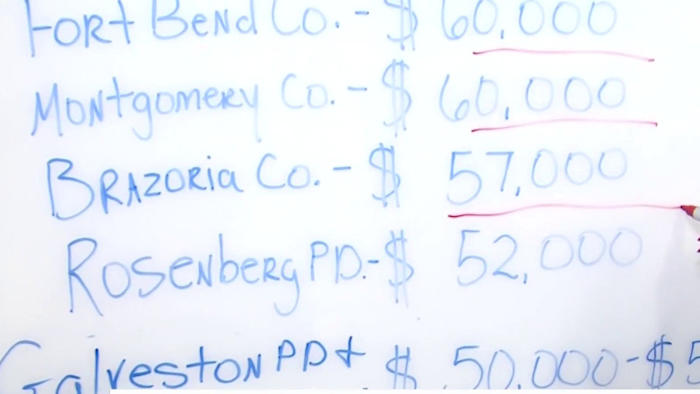 Fort Bend Co. - $ 60,000
Montgomery Co. - $ 60,000
Brazoria Co. - $ 57,000
Rosenberg PD. - $ 52,000
Galveston PD + $ 50,000 - $5